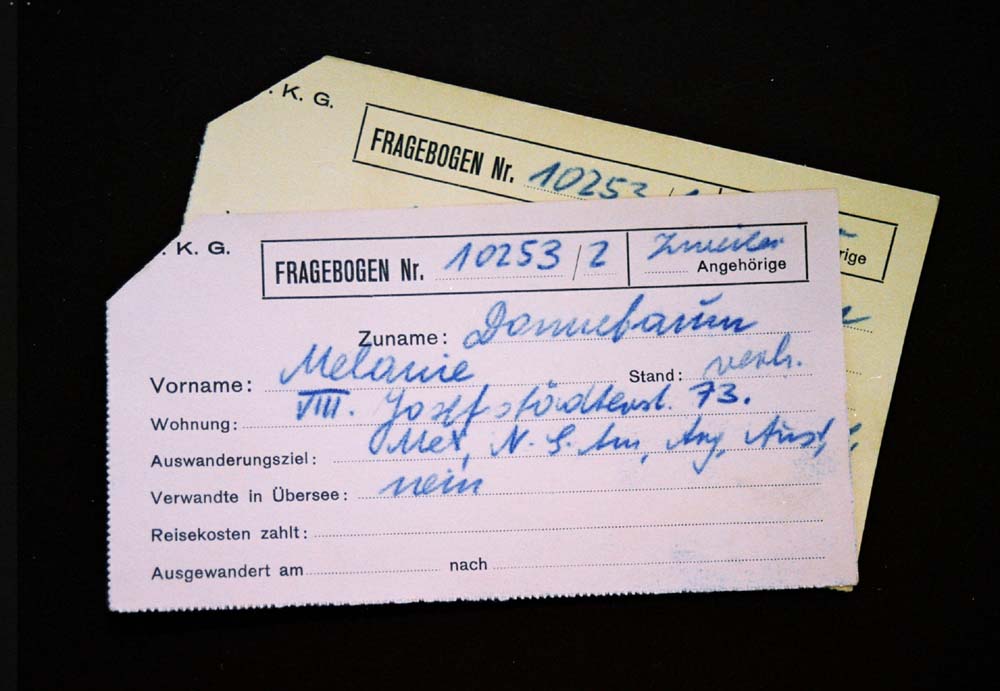 . K. G.
FRAGEBOGEN Nr. 10253 /
rige
. K. G.
FRAGEBOGEN Nr. 10253 / 2
Angehörige
Zuname: Donnebaum
Vorname: Melanie Stand: verh.
Wohnung: VIII. Josefstädterst. 73.
Auswanderungsziel: Mex, N. S. Am, Arg, Aust,
Verwandte in Übersee: nein
Reisekosten zahlt:
Ausgewandert am nach